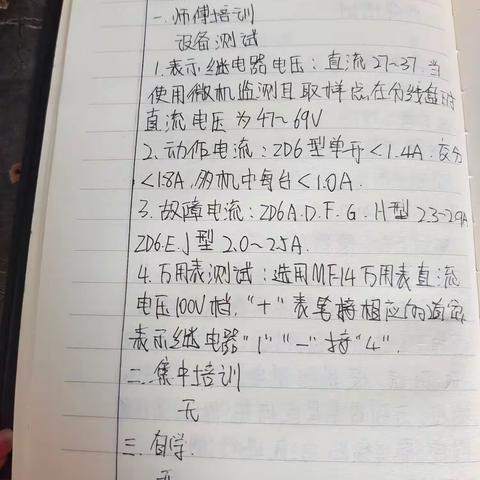 一.师傅培训
设备测试
1.表示继电器电压:直流27~37.当
使用微机监测且取样点在分线盘时
直流电压为47~69V
2.动作电流:ZD6型单开<1.4A.交分
<1.8A,多机中每台<1.0A.
3.故障电流:ZD6A.D.F.G.H型2.3~2.9A
ZD6.E.J型2.0~2.5A.
4.万用表测试:选用MF14万用表直流
电压100V档,“+”表笔接相应的道岔
表示继电器“1”“-”接“4”.
二.集中培训
无
三.自学.
无